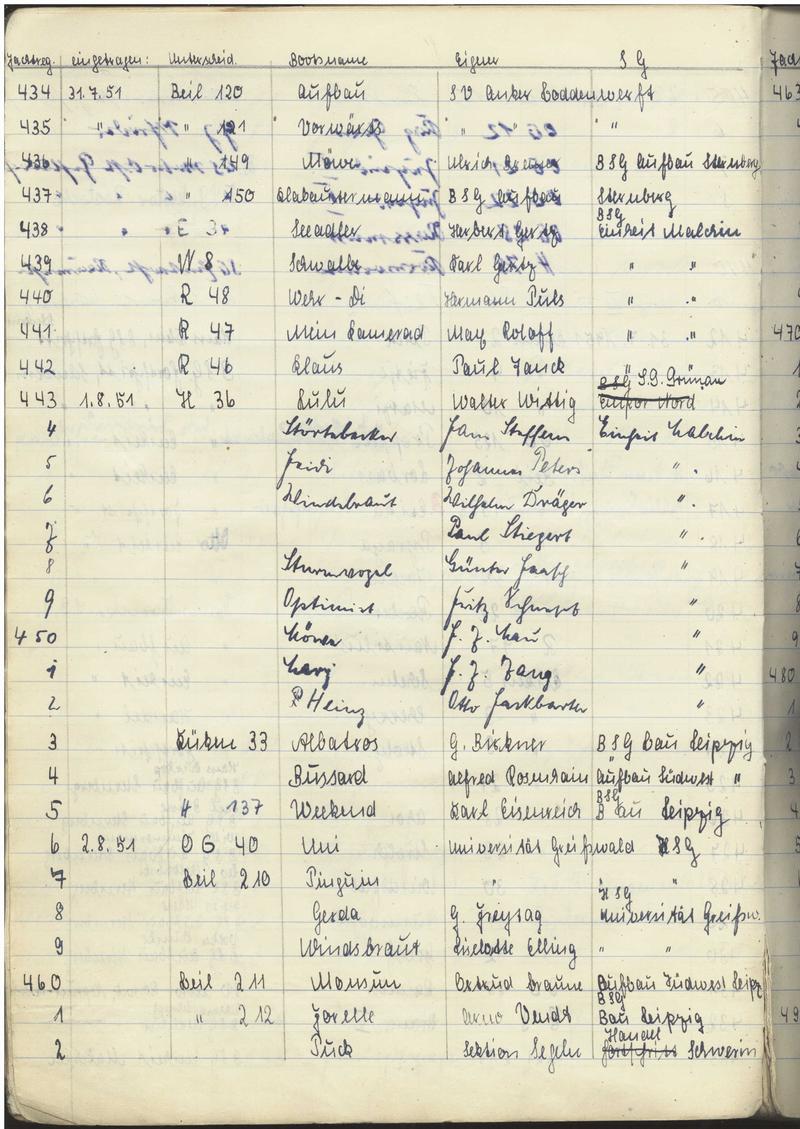 Jachtreg. eingetragen: Unterscheid. Bootsname Eigner SG
434 31.7.51 Beil 120 Aufbau SV Anker Boddenwerft
435 " " 121 Vorwärts " " "
436 " 149 Möwe Ulrich BSG Aufbau Sternberg
437 " 150 Klabautermann BSG Aufbau Sternberg
BSG
438 E Seeadler Herbert Gertz Einheit Malchin
439 N 8 Schwalbe Karl Gertz " "
440 R 48 Wehr-Di Hermann Puls " "
441 R 47 Mein Kamerad Max Roloff " "
442 R 46 Klaus Paul Janck "
S.G. Grünau
443 1.8.51 H 36 Lulu Walter Wittig Empor Nord
4 Störtebecker Jan Steffen Einheit Malchin
5 Heidi Johannes Peters " "
6 Windsbraut Wilhelm Dräger "
7 Paul Stiegert " "
8 Sturmvogel Günter "
9 Optimist Fritz "
450 Möwe "
1 "
2 P Heinz Otto "
3 Küken 33 Albatros G. Birkner BSG Bau Leipzig
4 Bussard Alfred Rosenhain Aufbau Südwest "
BSG
5 H 137 Weekend Karl Eisenreich Bau Leipzig
6 2.8.51 OG 40 Uni Universität Greifswald HSG
7 Beil 210 Pinguin " "
HSG
8 Gerda G. Freytag Universität Greifsw.
9 Windsbraut Liselotte Elling " "
460 Beil 211 Monsun Ortrud Braune Aufbau Südwest Leipz
BSG
1 " 212 Forelle Arno Wendt Bau Leipzig
Handel
2 Puck Sektion Segeln Fortschritt Schwerin
463
470
480